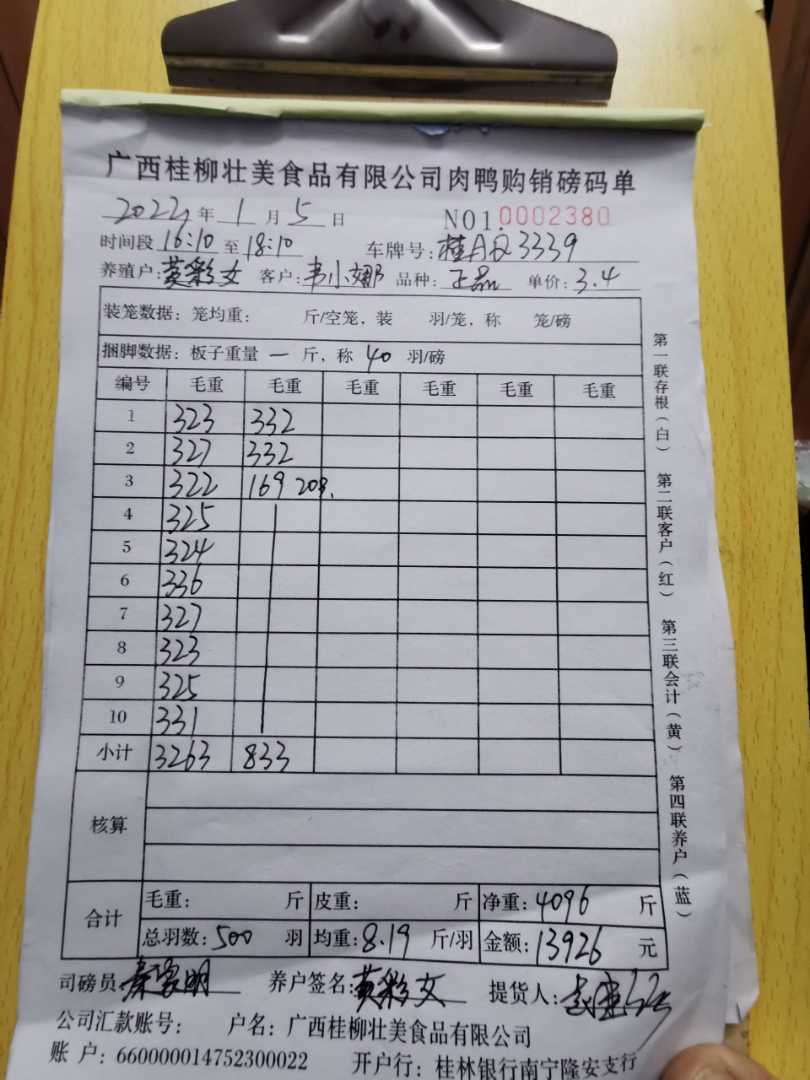 广西桂柳壮美食品有限公司肉鸭购销磅码单
2022年 1月 5日 NO1.0002380
时间段 16:10 至 18:10 车牌号: 桂AQ3339
养殖户: 黄彩女 客户: 韦小娜 品种: 正品 单价: 3.4
装笼数据: 笼均重: 斤/空笼, 装 羽/笼, 称 笼/磅
捆脚数据: 板子重量 一 斤, 称 40 羽/磅
编号 毛重 毛重 毛重 毛重 毛重 毛重
1 323 332
2 327 332
3 322 169 20羽
4 325
5 324
6 336
7 327
8 323
9 325
10 331
小计 3263 833
核算
合计 毛重: 斤 皮重: 斤 净重: 4096 斤
总羽数: 500 羽 均重: 8.19 斤/羽 金额: 13926 元
司磅员: 秦家明 养户签名: 黄彩女 提货人:
公司汇款账号: 户名: 广西桂柳壮美食品有限公司
账 户: 660000014752300022 开户行: 桂林银行南宁隆安支行
第一联存根(白) 第二联客户(红) 第三联会计(黄) 第四联养户(蓝)